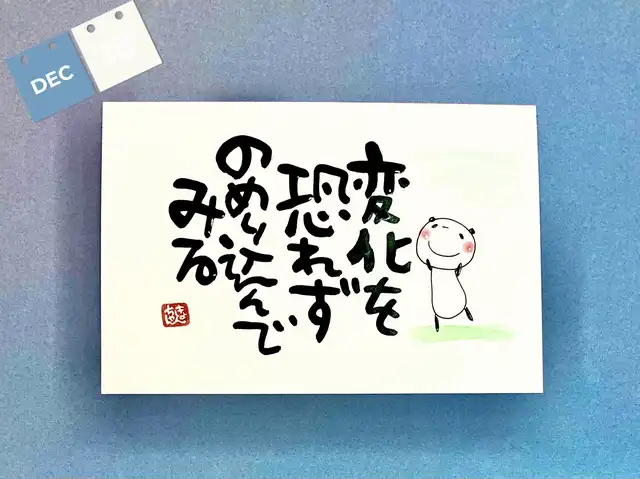 DEC
変化を
恐れず
のめり込んで
みる